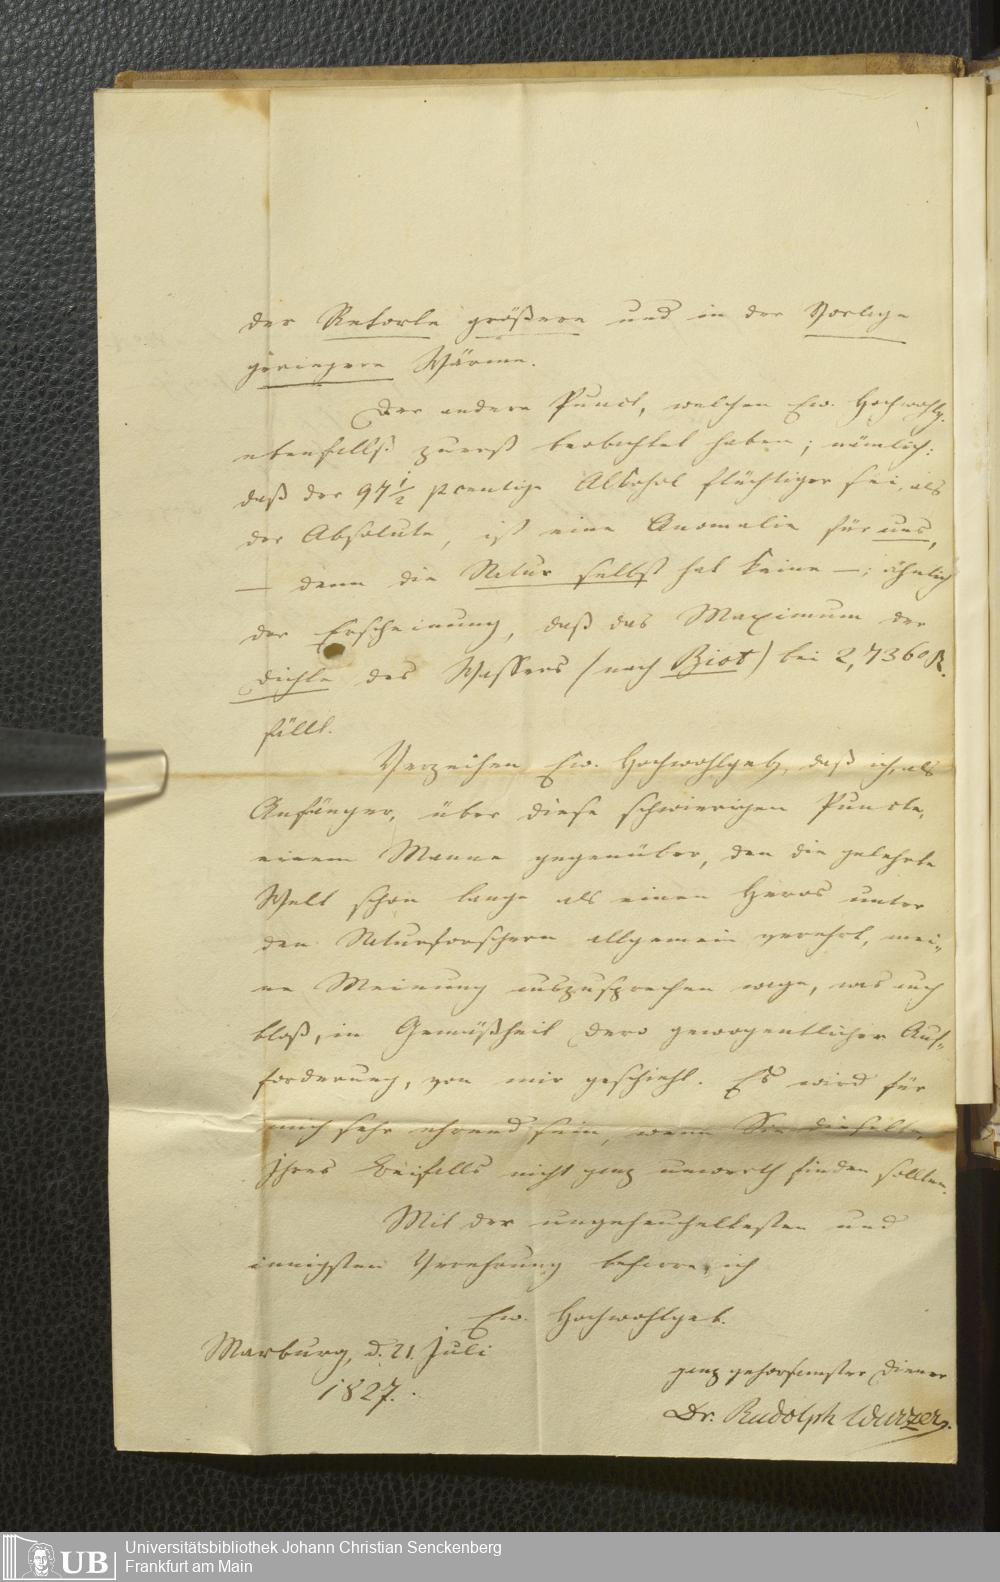 der Retorte größere und in der Vorlage
geringere Wärme.
Der andere Punct, welchen Ew. Hochwohlg.
ebenfalls zuerst beobachtet haben; nämlich:
daß der 97 1/2 pcentige Alkohol flüchtiger sei, als
der Absolute, ist eine Anomalie für uns,
— denn die Natur selbst hat keine —; ähnlich
der Erscheinung, daß das Maximum der
Dichte des Wassers (nach Biot) bei 2,7360 R.
fällt.
Verzeihen Ew. Hochwohlgeb, daß ich, als
Anfänger, über diese schwierigen Puncte,
einem Manne gegenüber, den die gelehrte
Welt schon lange als einen Heros unter
den Naturforschern allgemein verehrt, mei-
ne Meinung auszusprechen wage, was auch
bloß, in Gemäßheit Dero gewogentlicher Auf-
forderung, von mir geschieht. Es wird für
mich sehr ehrend sein, wenn Sie dieselbe,
Ihres Beifalls nicht ganz unwerth finden sollten.
Mit der ungeheucheltesten und
innigsten Verehrung beharre, ich
Ew. Hochwohlgeb.
Marburg, d. 21. Juli
1827.
ganz gehorsamster Diener
Dr. Rudolph Wurzer.
UB
Universitätsbibliothek Johann Christian Senckenberg
Frankfurt am Main